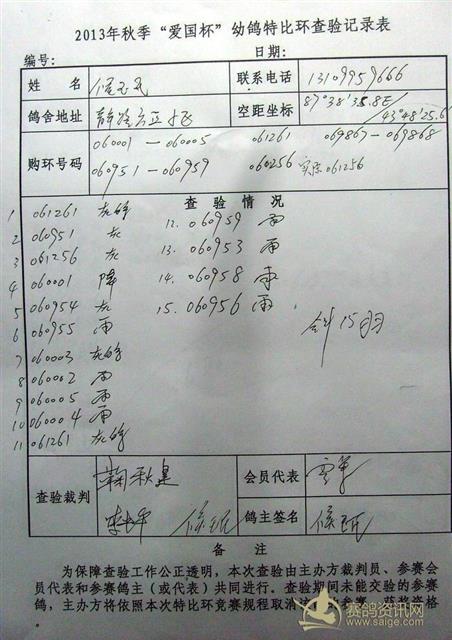 2013年秋季“爱国杯”幼鸽特比环查验记录表
编号: 日期:
姓名 联系电话 13109959666
鸽舍地址 空距坐标 87°38′38.8E/43°48′25.6
购环号码 060001—060005 061261 069867—069868
060951—060959 060256 实际061256
查验情况
1 061261 灰
2 060951 灰
3 061256 灰
4 060001 降
5 060954 灰
6 060955 雨
7 060003 灰
8 060002 雨
9 060005 雨
10 060004 雨
11 061261 灰
12. 060959 雨
13. 060953 雨
14. 060958 雨
15. 060956 雨
15羽
查验裁判 鞠秋星 会员代表
鸽主签名
备注
为保障查验工作公正透明，本次查验由主办方裁判员、参赛会
员代表和参赛鸽主（或代表）共同进行。查验期间未能交验的参赛
鸽，主办方将依照本次特比环竞赛规程取消
赛鸽资讯网
www.saige.com